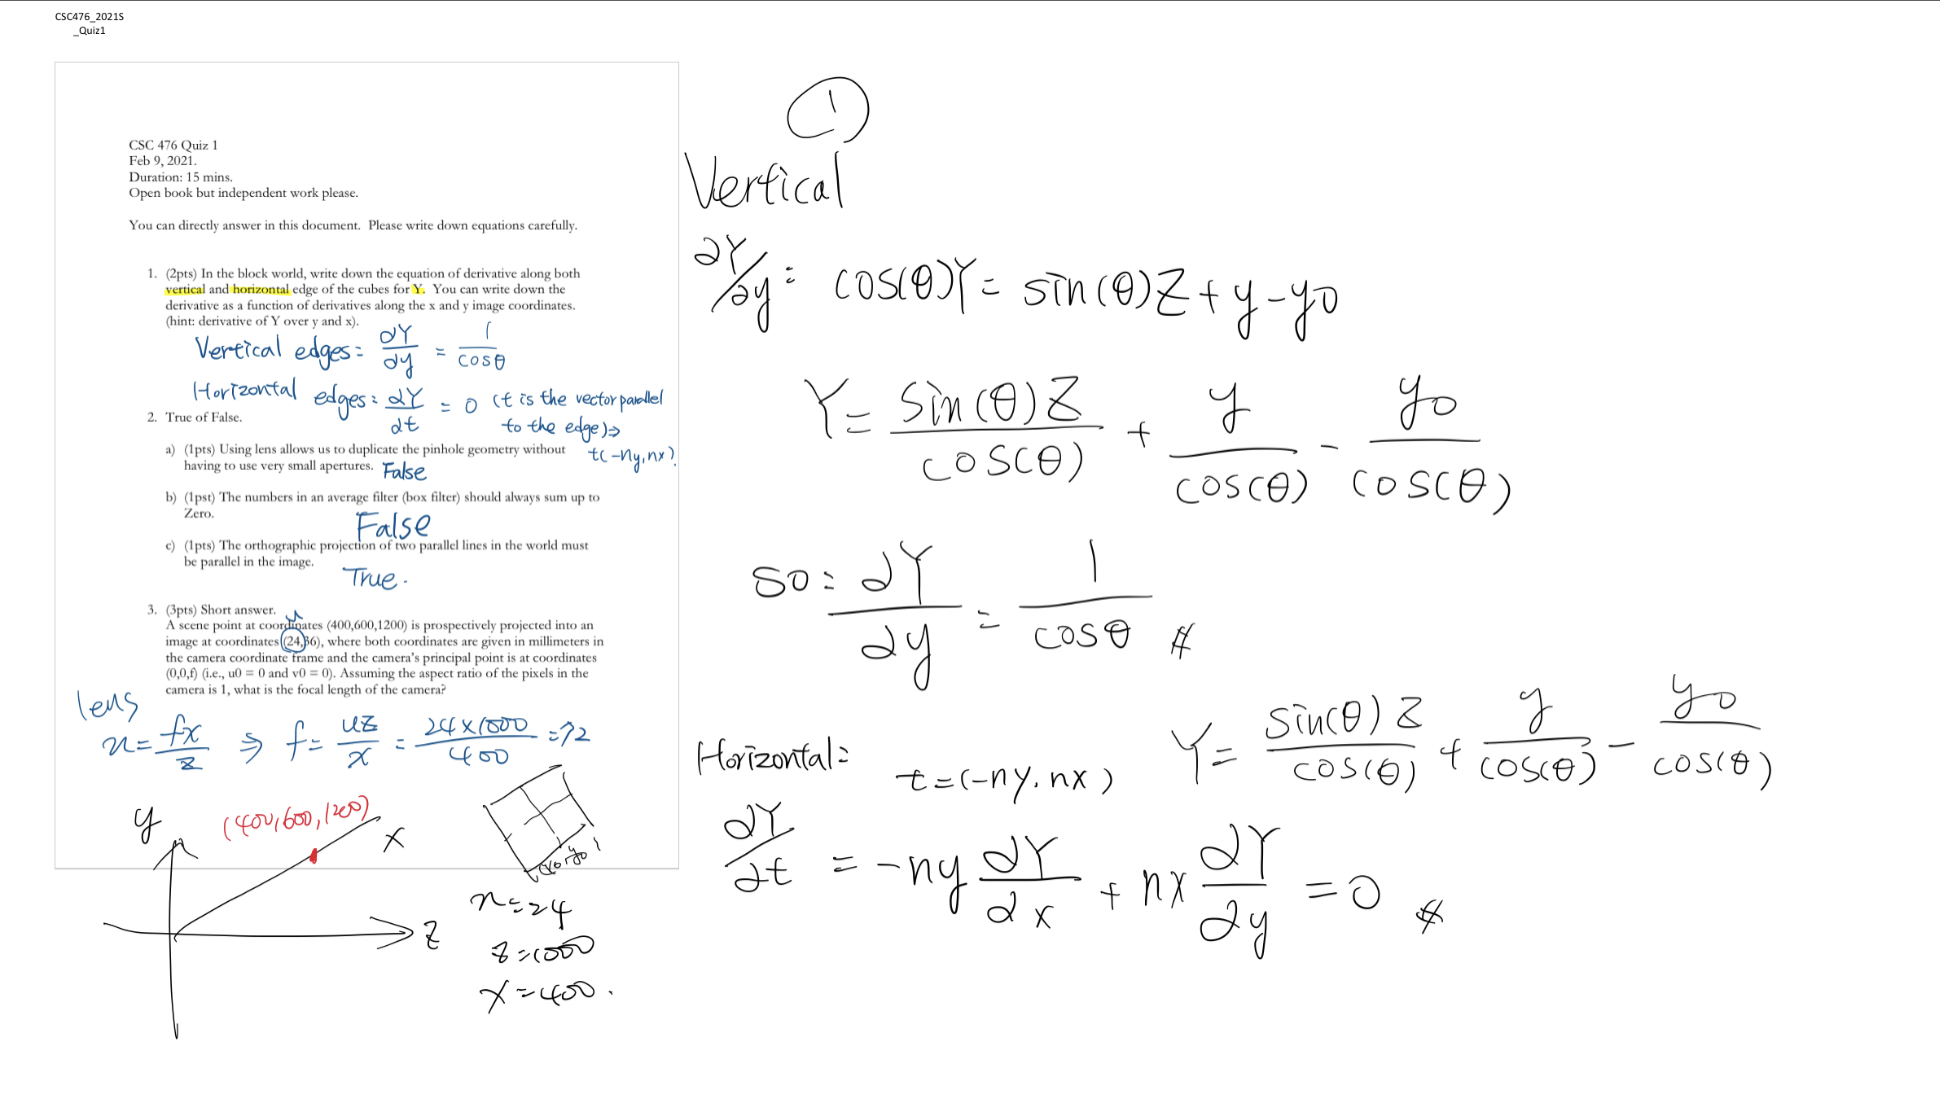 CSC476_2021S
_Quiz1
CSC 476 Quiz 1
Feb 9, 2021.
Duration: 15 mins.
Open book but independent work please.
You can directly answer in this document. Please write down equations carefully.
1. (2pts) In the block world, write down the equation of derivative along both
vertical and horizontal edge of the cubes for Y. You can write down the
derivative as a function of derivatives along the x and y image coordinates.
(hint: derivative of Y over y and x).
Vertical edges: ∂Y/∂y = 1/cosθ
Horizontal edges: ∂Y/∂t = 0 (t is the vector parallel
to the edge)⇒
t(-ny, nx)
2. True of False.
a) (1pts) Using lens allows us to duplicate the pinhole geometry without
having to use very small apertures. False
b) (1pst) The numbers in an average filter (box filter) should always sum up to
Zero.
False
c) (1pts) The orthographic projection of two parallel lines in the world must
be parallel in the image.
True.
3. (3pts) Short answer.
A scene point at coordinates (400,600,1200) is prospectively projected into an
image at coordinates (24,36), where both coordinates are given in millimeters in
the camera coordinate frame and the camera's principal point is at coordinates
(0,0,f) (i.e., u0 = 0 and v0 = 0). Assuming the aspect ratio of the pixels in the
camera is 1, what is the focal length of the camera?
lens
u = fx/z ⇒ f = uz/x = /400 = 72
y
(400,600,1200)
x
z
(x0,y0)
n=24
x=400.
1
Vertical
∂Y/∂y: cos(θ)Y = sin(θ)Z + y - y0
Y = sin(θ)Z/cos(θ) + y/cos(θ) - y0/cos(θ)
so: ∂Y/∂y = 1/cosθ #
Horizontal: t=(-ny, nx) Y = sin(θ)Z/cos(θ) + y/cos(θ) - y0/cos(θ)
∂Y/∂t = -ny ∂Y/∂x + nx ∂Y/∂y = 0 #